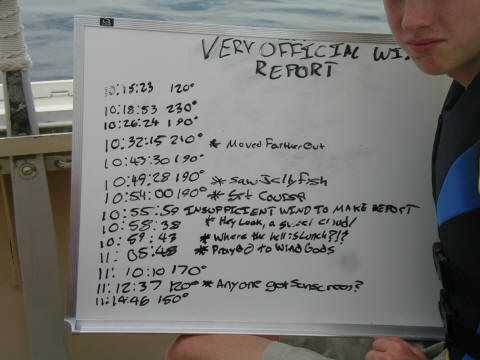 VERY OFFICIAL WI
REPORT
10:15:23 120°
10:18:53 230°
10:26:24 190°
10:32:15 210° * Moved Farther Out
10:43:30 190°
10:49:28 190° * Saw Jellyfish
10:54:00 190° * Set Course
10:55:59 INSUFFICIENT WIND TO MAKE REPORT
10:58:38 * Hey Look, a cloud!
10:59:43 * Where the hell is Lunch?!?
11:05:45 * Prayed to Wind Gods
11:10:10 170°
11:12:37 120° * Anyone got Sunscreen?
11:14:46 150°